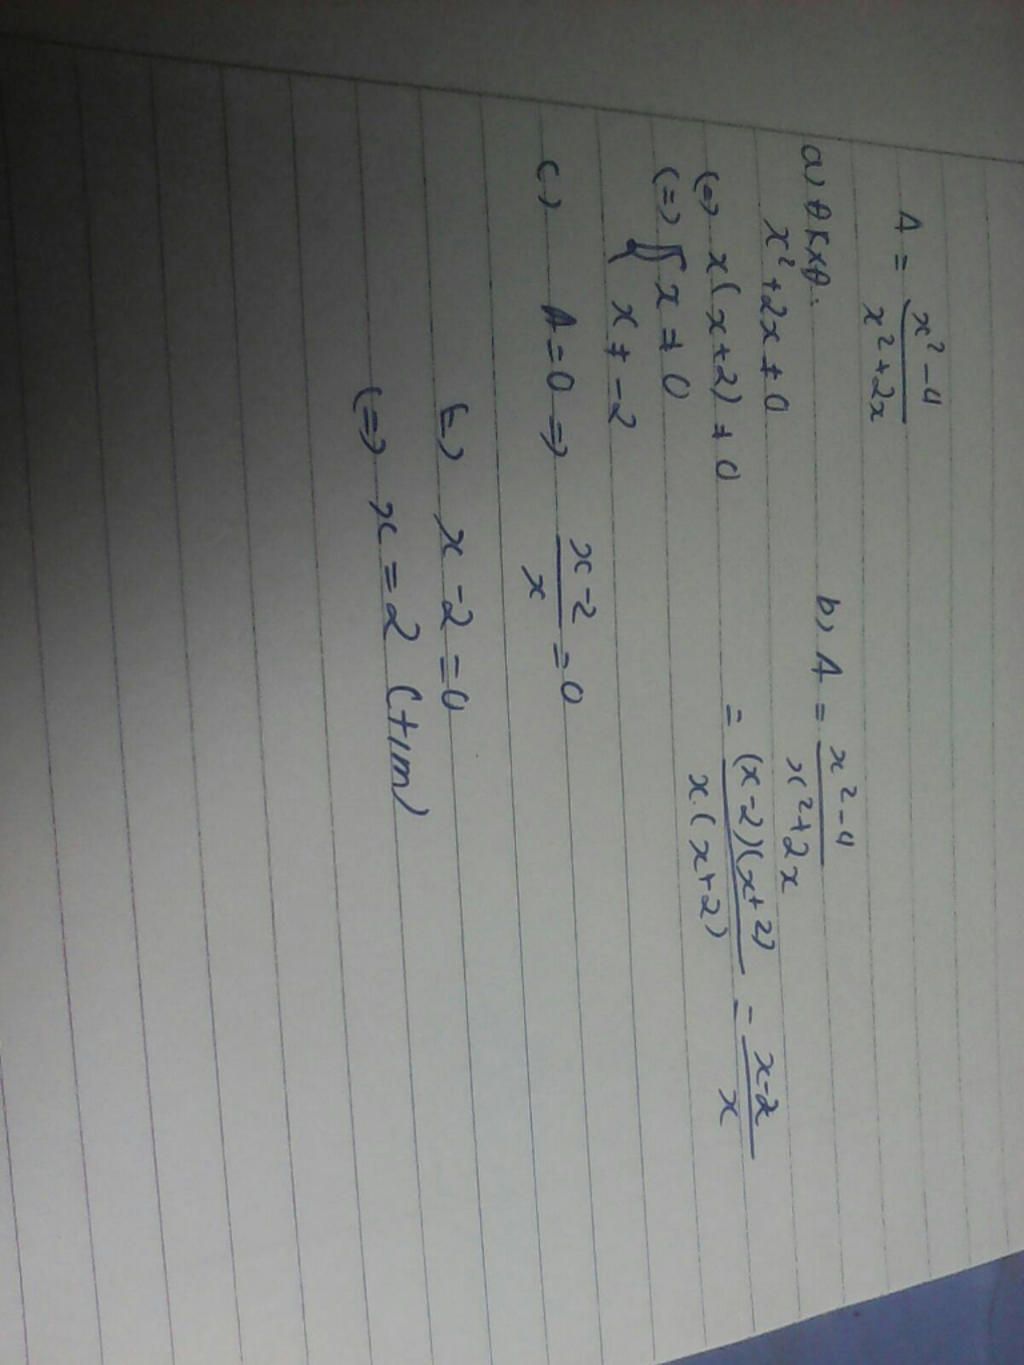 A = x² - 4 / x² + 2x
a) ĐKXĐ:
x² + 2x ≠ 0
(=) x(x+2) ≠ 0
(=) { x ≠ 0
x ≠ -2
b) A = x² - 4 / x² + 2x
= (x-2)(x+2) / x(x+2) = x-2 / x
c) A = 0 => x-2 / x = 0
(=) x - 2 = 0
(=) x = 2 (t/m)